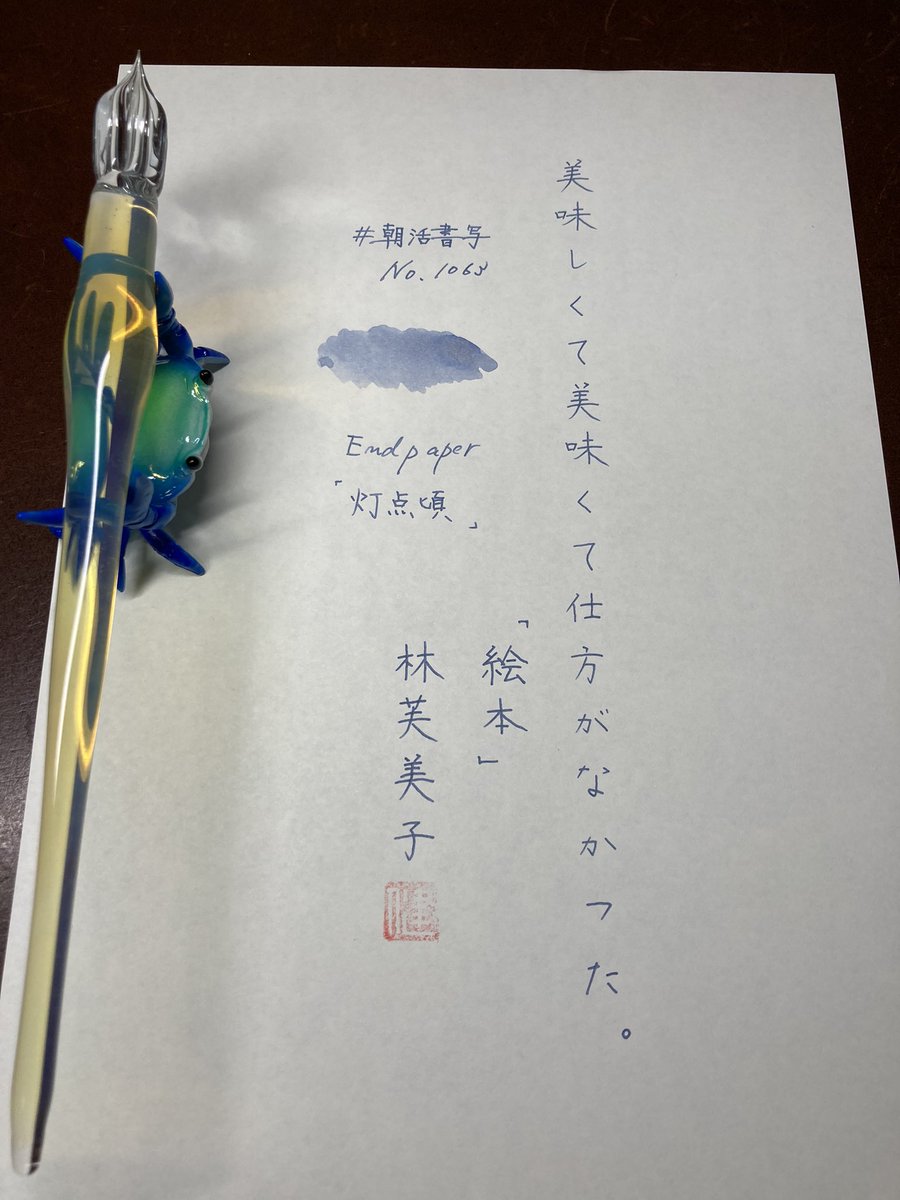 美味しくて美味くて仕方がなかった。
「絵本」
林芙美子
#朝活書写
No.
Endpaper
「灯点頃」